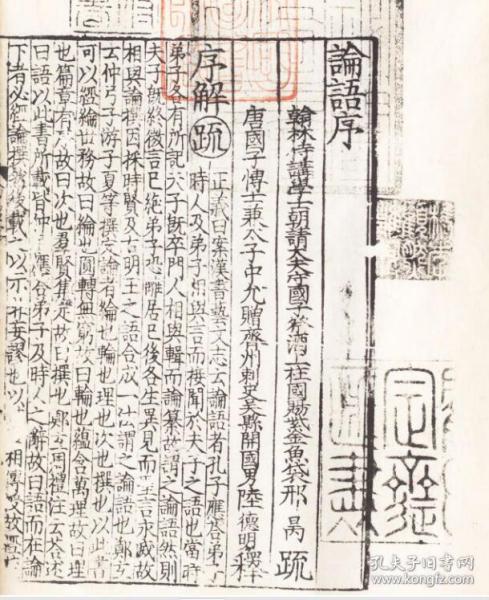 論語序
翰林侍講學士朝請大夫守國子祭酒上柱國賜紫金魚袋邢昺疏
唐國子博士兼太子中允贈齊州刺史吳縣開國男陸德明釋
序解疏
正義曰案漢書藝文志云論語者孔子應荅弟子
時人及弟子相與言而接聞於夫子之語也當時
弟子各有所記夫子既卒門人相與輯而論纂故謂之論語然則
夫子既終微言已絶弟子恐離居已後各生異見而聖言永滅故
相與論撰因採時賢及古明王之語合成一法謂之論語也鄭玄
云仲弓子游子夏等撰定論者綸也輪也理也次也撰也以此書
可以經綸世務故曰綸也圓轉無窮故曰輪也藴含萬理故曰理
也篇章有序故曰次也羣賢集定故曰撰也鄭玄周禮注云荅述
曰語以此書所載皆仲尼應荅弟子及時人之辭故曰語而在論
下者必經論撰然後載之以示非妄謬也以
孔夫子旧书网
kongfz.com